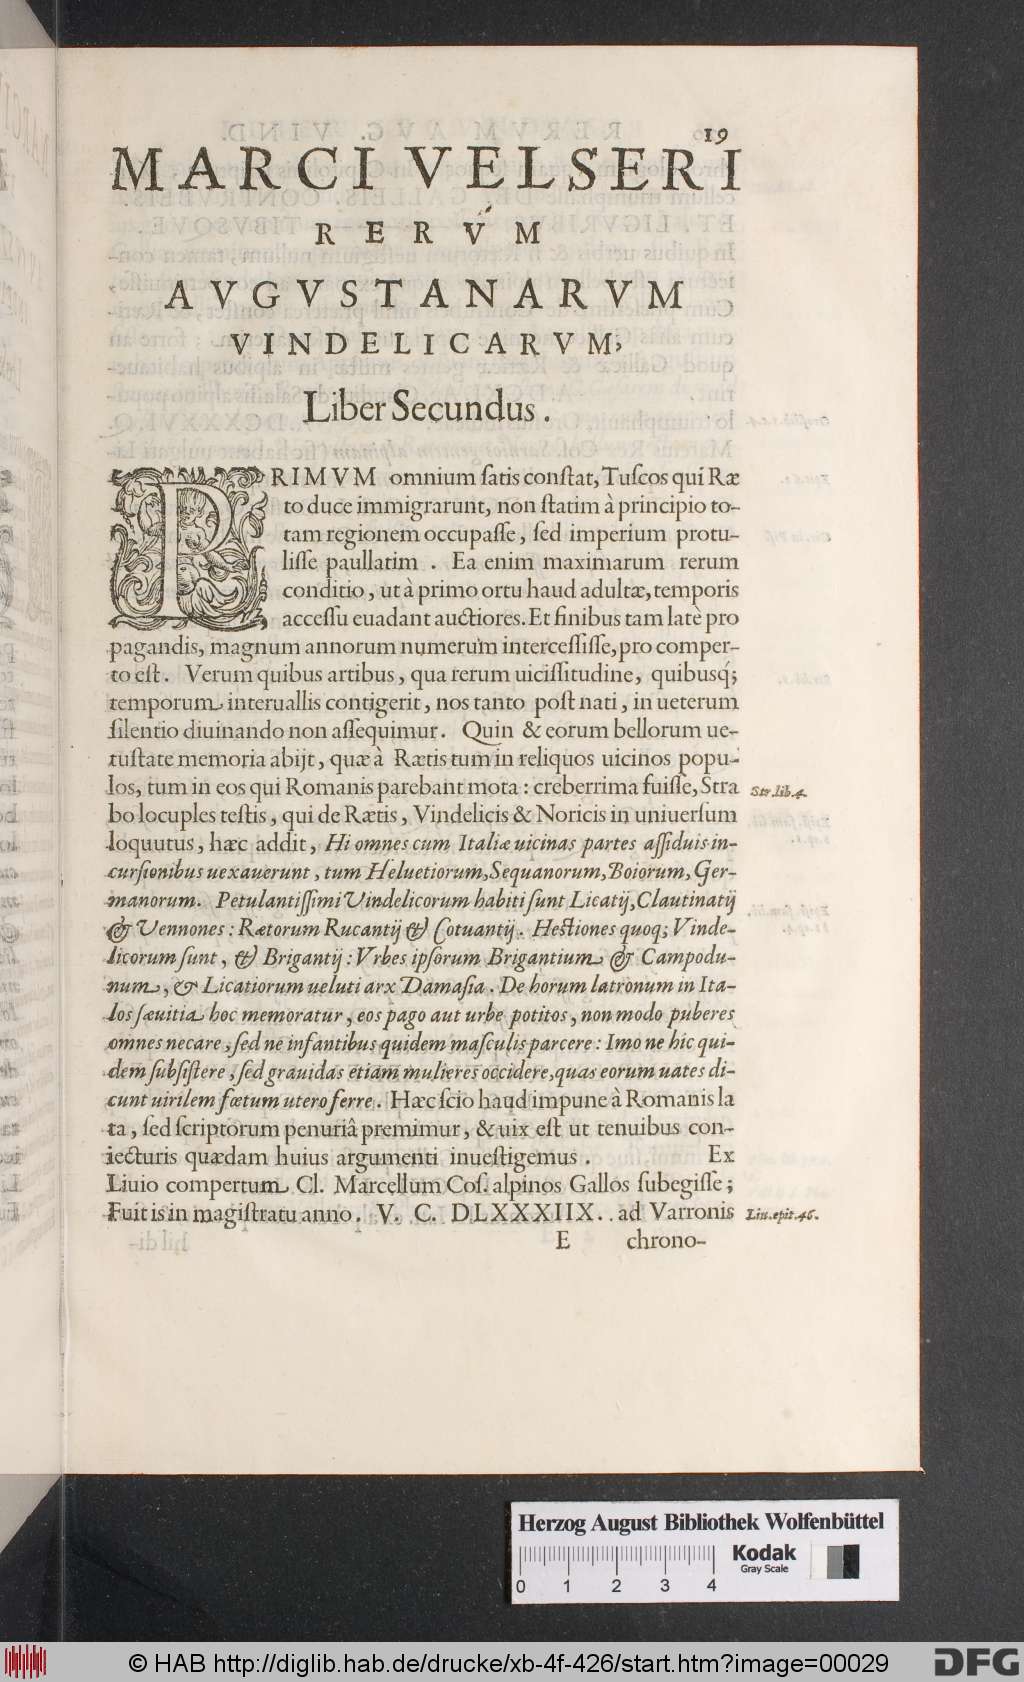 19
MARCI VELSERI
RERVM
AVGVSTANARVM
VINDELICARVM,
Liber Secundus.
PRIMVM omnium satis constat, Tuscos qui Ræ
to duce immigrarunt, non statim à principio to-
tam regionem occupasse, sed imperium protu-
lisse paullatim . Ea enim maximarum rerum
conditio, ut à primo ortu haud adultæ, temporis
accessu euadant auctiores. Et finibus tam latè pro
pagandis, magnum annorum numerum intercessisse, pro comper-
to est. Verum quibus artibus, qua rerum uicissitudine, quibusq́;
temporum interuallis contigerit, nos tanto post nati, in ueterum
silentio diuinando non assequimur. Quin & eorum bellorum ue-
tustate memoria abijt, quæ à Rætis tum in reliquos uicinos popu-
los, tum in eos qui Romanis parebant mota: creberrima fuisse, Stra
bo locuples testis, qui de Rætis, Vindelicis & Noricis in uniuersum
loquutus, hæc addit, Hi omnes cum Italiæ uicinas partes assiduis in-
cursionibus uexauerunt, tum Heluetiorum, Sequanorum, Boiorum, Ger-
manorum. Petulantissimi Vindelicorum habiti sunt Licatij, Clautinatij
& Vennones: Rætorum Rucantij & Cotuantij. Hestiones quoq; Vinde-
licorum sunt, & Brigantij: Vrbes ipsorum Brigantium & Campodu-
num, & Licatiorum ueluti arx Damasia. De horum latronum in Ita-
los sæuitia hoc memoratur, eos pago aut urbe potitos, non modo puberes
omnes necare, sed ne infantibus quidem masculis parcere: Imo ne hic qui-
dem subsistere, sed grauidas etiam mulieres occidere, quas eorum uates di-
cunt uirilem fœtum utero ferre. Hæc scio haud impune à Romanis la
ta, sed scriptorum penuriâ premimur, & uix est ut tenuibus con-
iecturis quædam huius argumenti inuestigemus. Ex
Liuio compertum Cl. Marcellum Cos. alpinos Gallos subegisse;
Fuit is in magistratu anno. V. C. DLXXXIIX. ad Varronis
E chrono-
Str. lib. 4.
Liu. epit. 46.
Herzog August Bibliothek Wolfenbüttel
0 1 2 3 4
Kodak
Gray Scale
© HAB http://diglib.hab.de/drucke/xb-4f-426/start.htm?image=00029
DFG